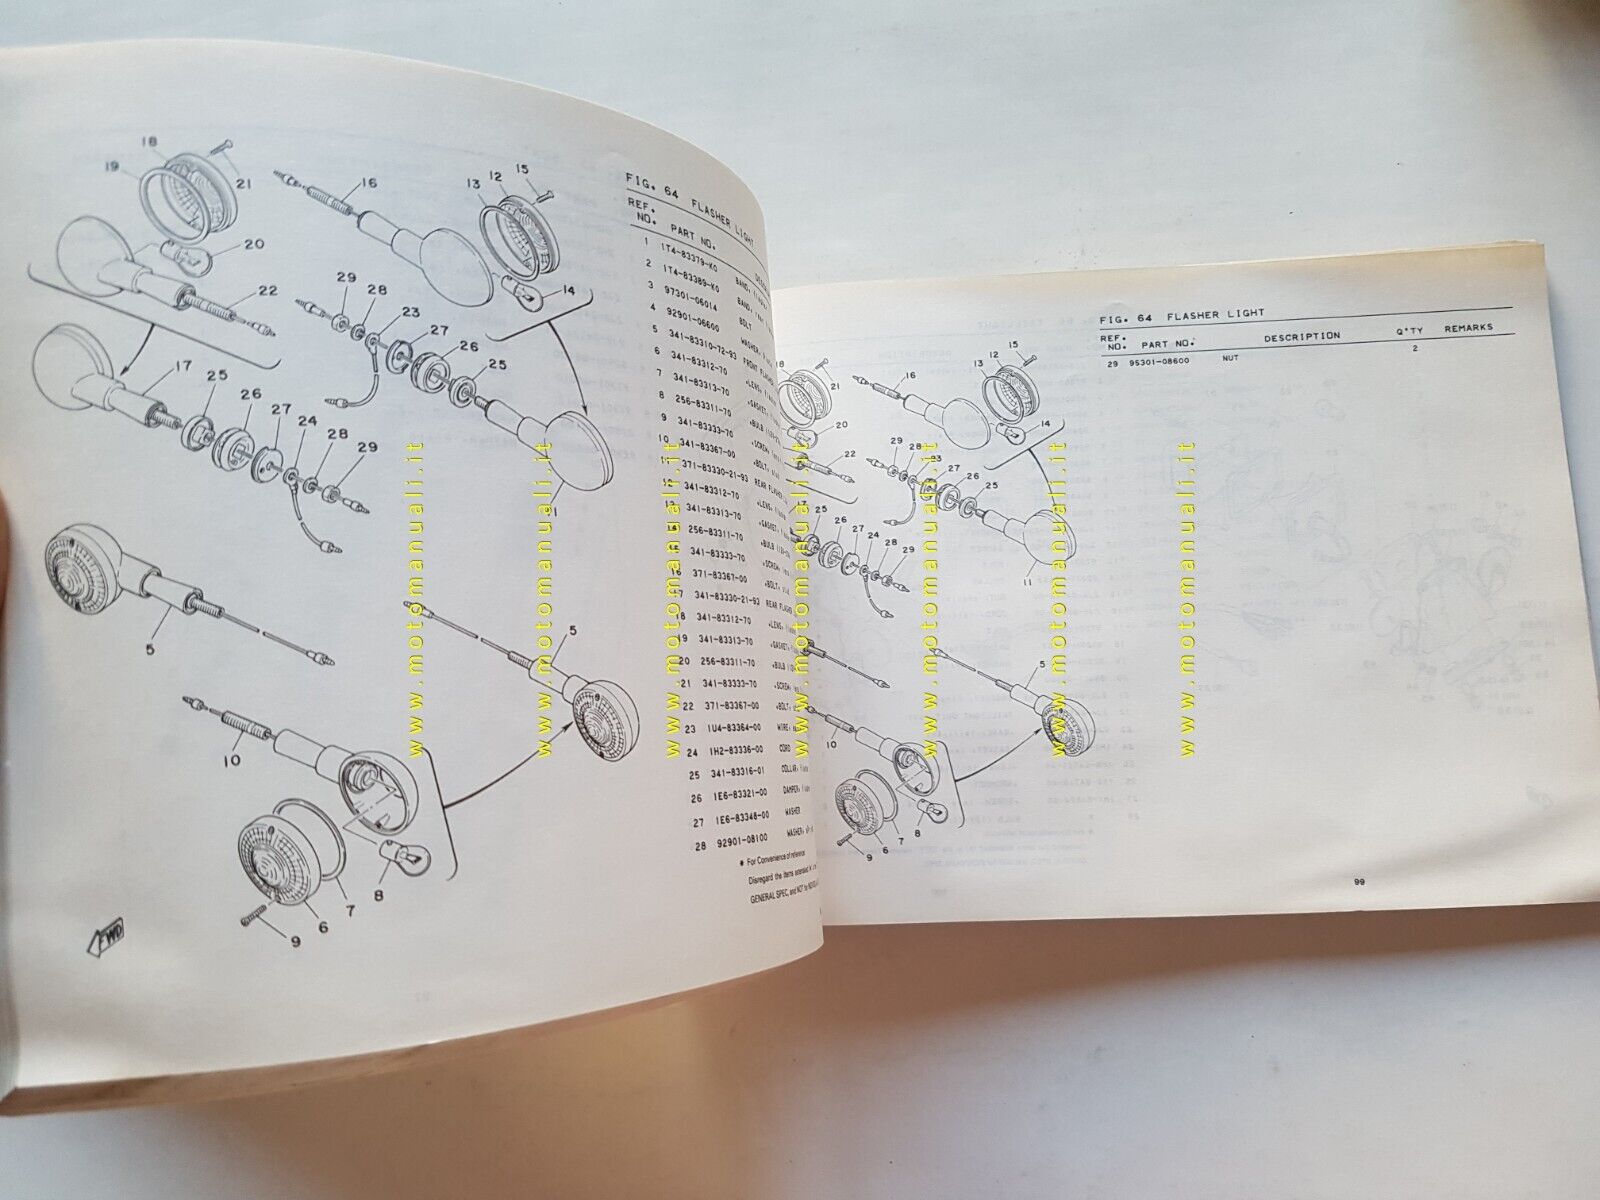 18
19
21
20
22
16
13
12
15
14
29
28
23
27
26
25
17
25
26
27
24
28
29
5
5
10
9
6
7
8
FWD
FIG. 64 FLASHER LIGHT
REF. NO. PART NO.
1 1T4-83379-K0 BAND,
2 1T4-83389-K0 BAND,
3 97301-06014 BOLT
4 92901-06600 WASHER,
5 341-83310-72-93 FRONT
6 341-83312-70 .LENS,
7 341-83313-70 .GASKET,
8 256-83311-70 .BULB
9 341-83333-70 .SCREW,
10 341-83367-00 .BOLT,
11 371-83330-21-93 REAR
12 341-83312-70 .LENS,
13 341-83313-70 .GASKET,
14 256-83311-70 .BULB
15 341-83333-70 .SCREW,
16 371-83367-00 .BOLT,
17 341-83330-21-93 REAR FLASHER
18 341-83312-70 .LENS,
19 341-83313-70 .GASKET,
20 256-83311-70 .BULB
21 341-83333-70 .SCREW,
22 371-83367-00 .BOLT,
23 1U4-83364-00 WIRE,
24 1H2-83336-00 CORD
25 341-83316-01 COLLAR,
26 1E6-83321-00 DAMPER,
27 1E6-83348-00 WASHER
28 92901-08100 WASHER,
* For Convenience of reference
Disregard the items
GENERAL SPEC, and NOT for
FIG. 64 FLASHER LIGHT
REF. NO. PART NO. DESCRIPTION Q'TY REMARKS
29 95301-08600 NUT 2
18
21
20
22
16
13
12
15
14
29
28
23
27
26
25
17
25
26
27
24
28
29
11
5
10
9
6
7
8
99
www.motomanuali.it
www.motomanuali.it
www.motomanuali.it
www.motomanuali.it
www.motomanuali.it
www.motomanuali.it
www.motomanuali.it